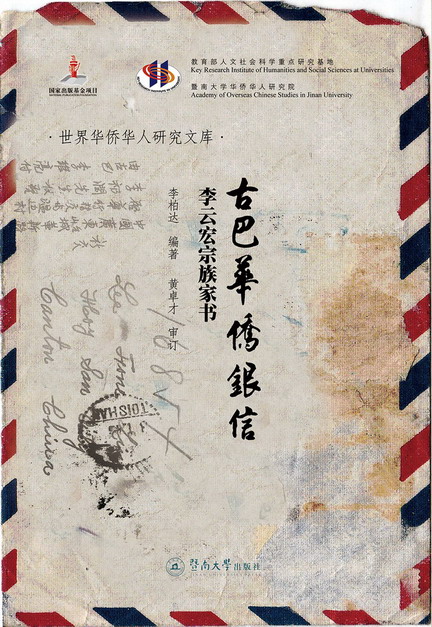 国家出版基金项目
NATIONAL PUBLICATION FOUNDATION
教育部人文社会科学重点研究基地
Key Research Institute of Humanities and Social Sciences at Universities
暨南大学华侨华人研究院
Academy of Overseas Chinese Studies in Jinan University
·世界华侨华人研究文库·
古巴華僑銀信
李云宏宗族家书
李柏达 编著 黄卓才 审订
Canton China
TOISHAN
暨南大学出版社